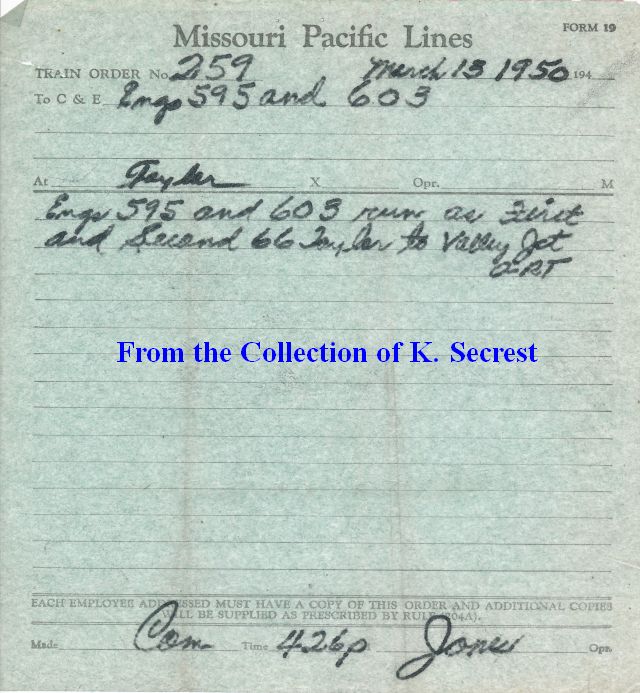 FORM 19
Missouri Pacific Lines
TRAIN ORDER No. 259 March 13 1950, 194
To C & E Engs 595 and 603
At Taylor X Opr. M
Engs 595 and 603 run as First
and Second 66 Taylor to Valley Jct
From the Collection of K. Secrest
EACH EMPLOYEE ADDRESSED MUST HAVE A COPY OF THIS ORDER AND ADDITIONAL COPIES
WILL BE SUPPLIED AS PRESCRIBED BY RULE (204A).
Made Com. Time 426p Jones Opr.